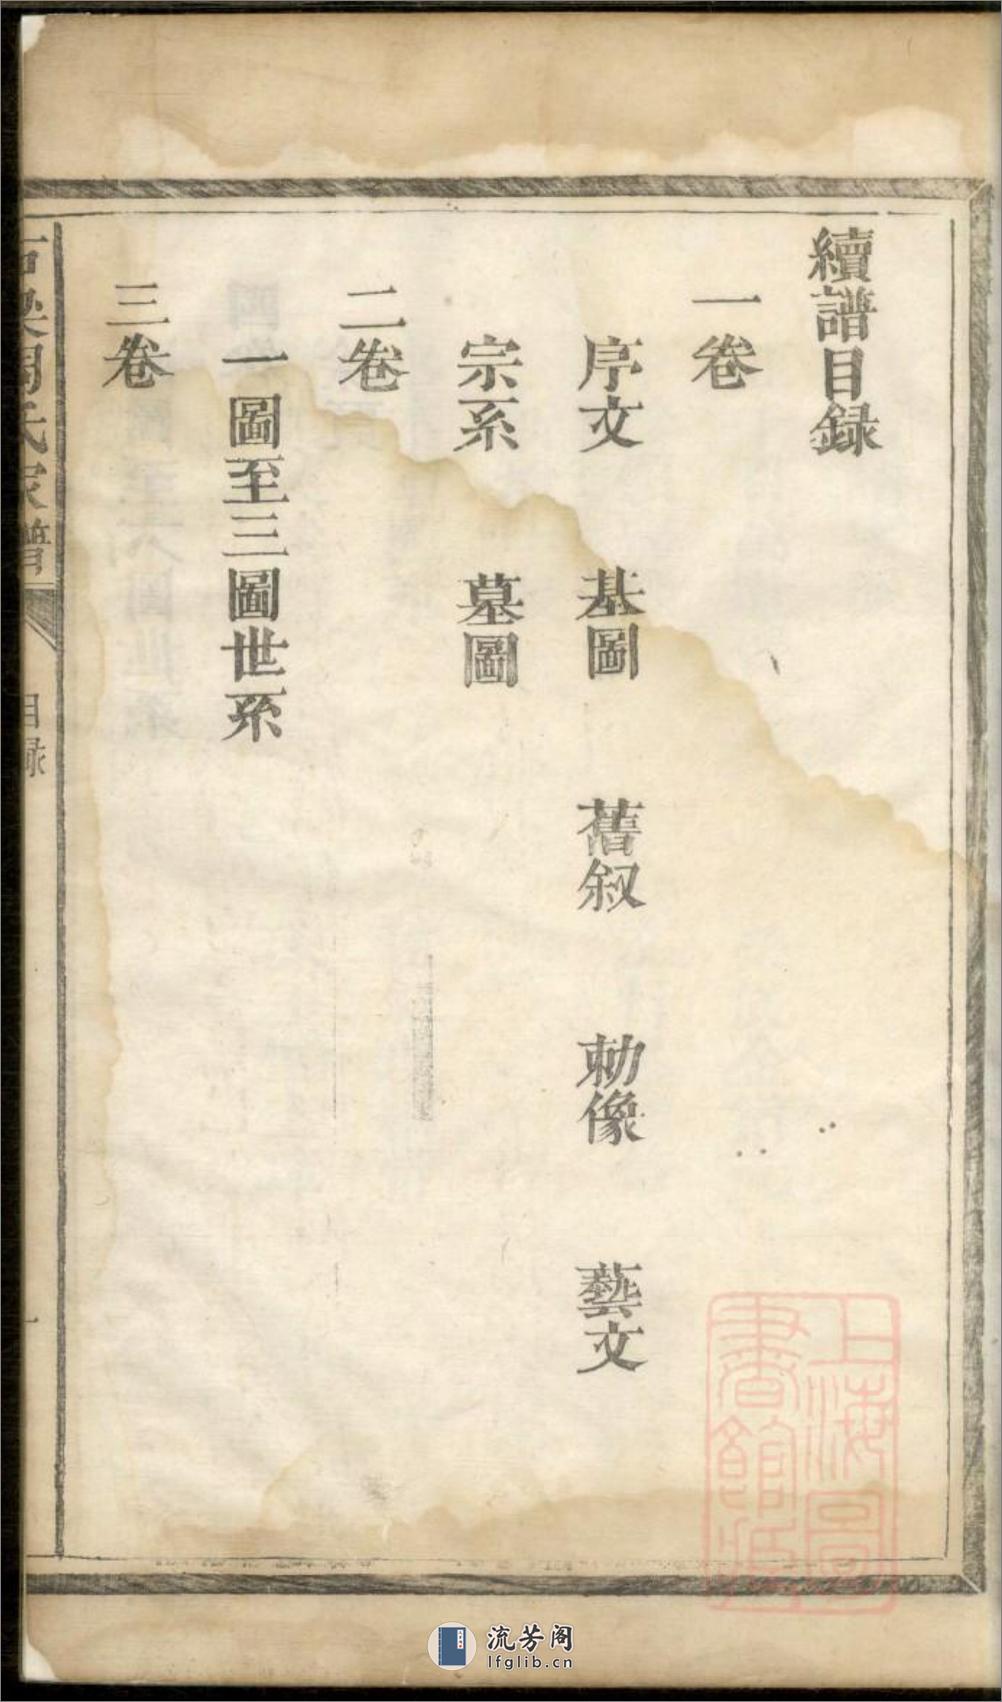 續譜目録
一卷
序文 基圖 舊叙 勅像 藝文
宗系 墓圖
二卷
一圖至三圖世系
三卷
氏家譜
目録
一
上海圖書館藏
流芳阁
lfglib.cn